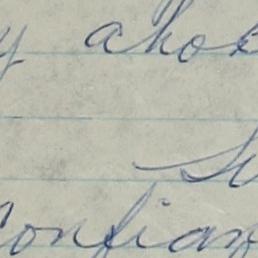 y ahor
Su
confian